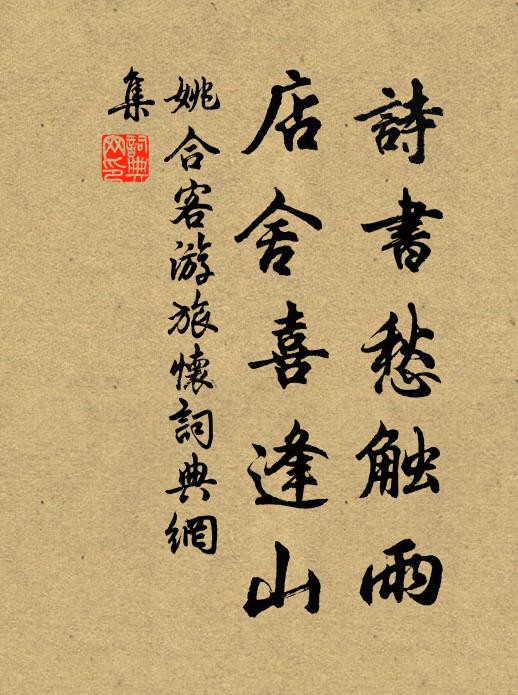 詩書愁觸雨
店舍喜逢山
姚合客游旅懷詞典網
集
詞典
网印